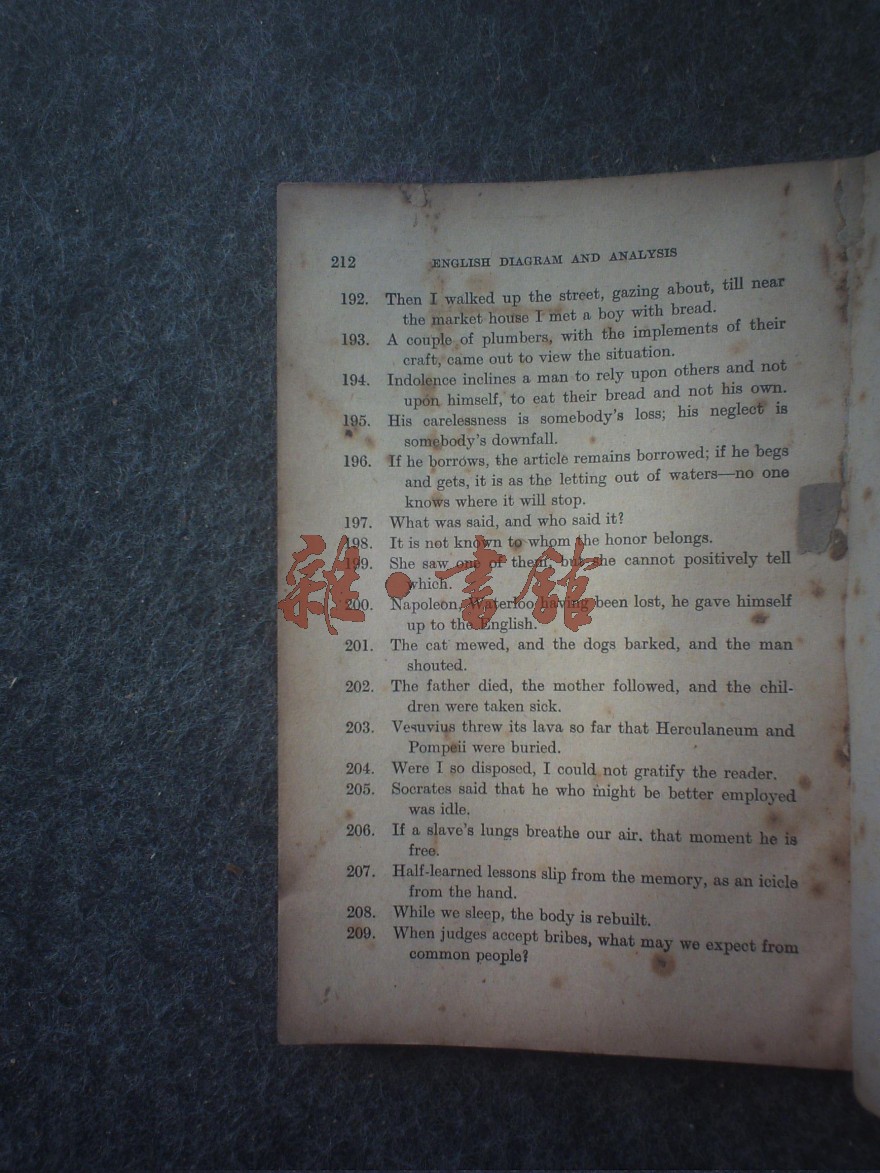 212 ENGLISH DIAGRAM AND ANALYSIS
192. Then I walked up the street, gazing about, till near
the market house I met a boy with bread.
193. A couple of plumbers, with the implements of their
craft, came out to view the situation.
194. Indolence inclines a man to rely upon others and not
upon himself, to eat their bread and not his own.
195. His carelessness is somebody's loss; his neglect is
somebody's downfall.
196. If he borrows, the article remains borrowed; if he begs
and gets, it is as the letting out of waters—no one
knows where it will stop.
197. What was said, and who said it?
198. It is not known to whom the honor belongs.
199. She saw one of them, but she cannot positively tell
which.
200. Napoleon, Waterloo having been lost, he gave himself
up to the English.
雜·書館
201. The cat mewed, and the dogs barked, and the man
shouted.
202. The father died, the mother followed, and the chil-
dren were taken sick.
203. Vesuvius threw its lava so far that Herculaneum and
Pompeii were buried.
204. Were I so disposed, I could not gratify the reader.
205. Socrates said that he who might be better employed
was idle.
206. If a slave's lungs breathe our air, that moment he is
free.
207. Half-learned lessons slip from the memory, as an icicle
from the hand.
208. While we sleep, the body is rebuilt.
209. When judges accept bribes, what may we expect from
common people?